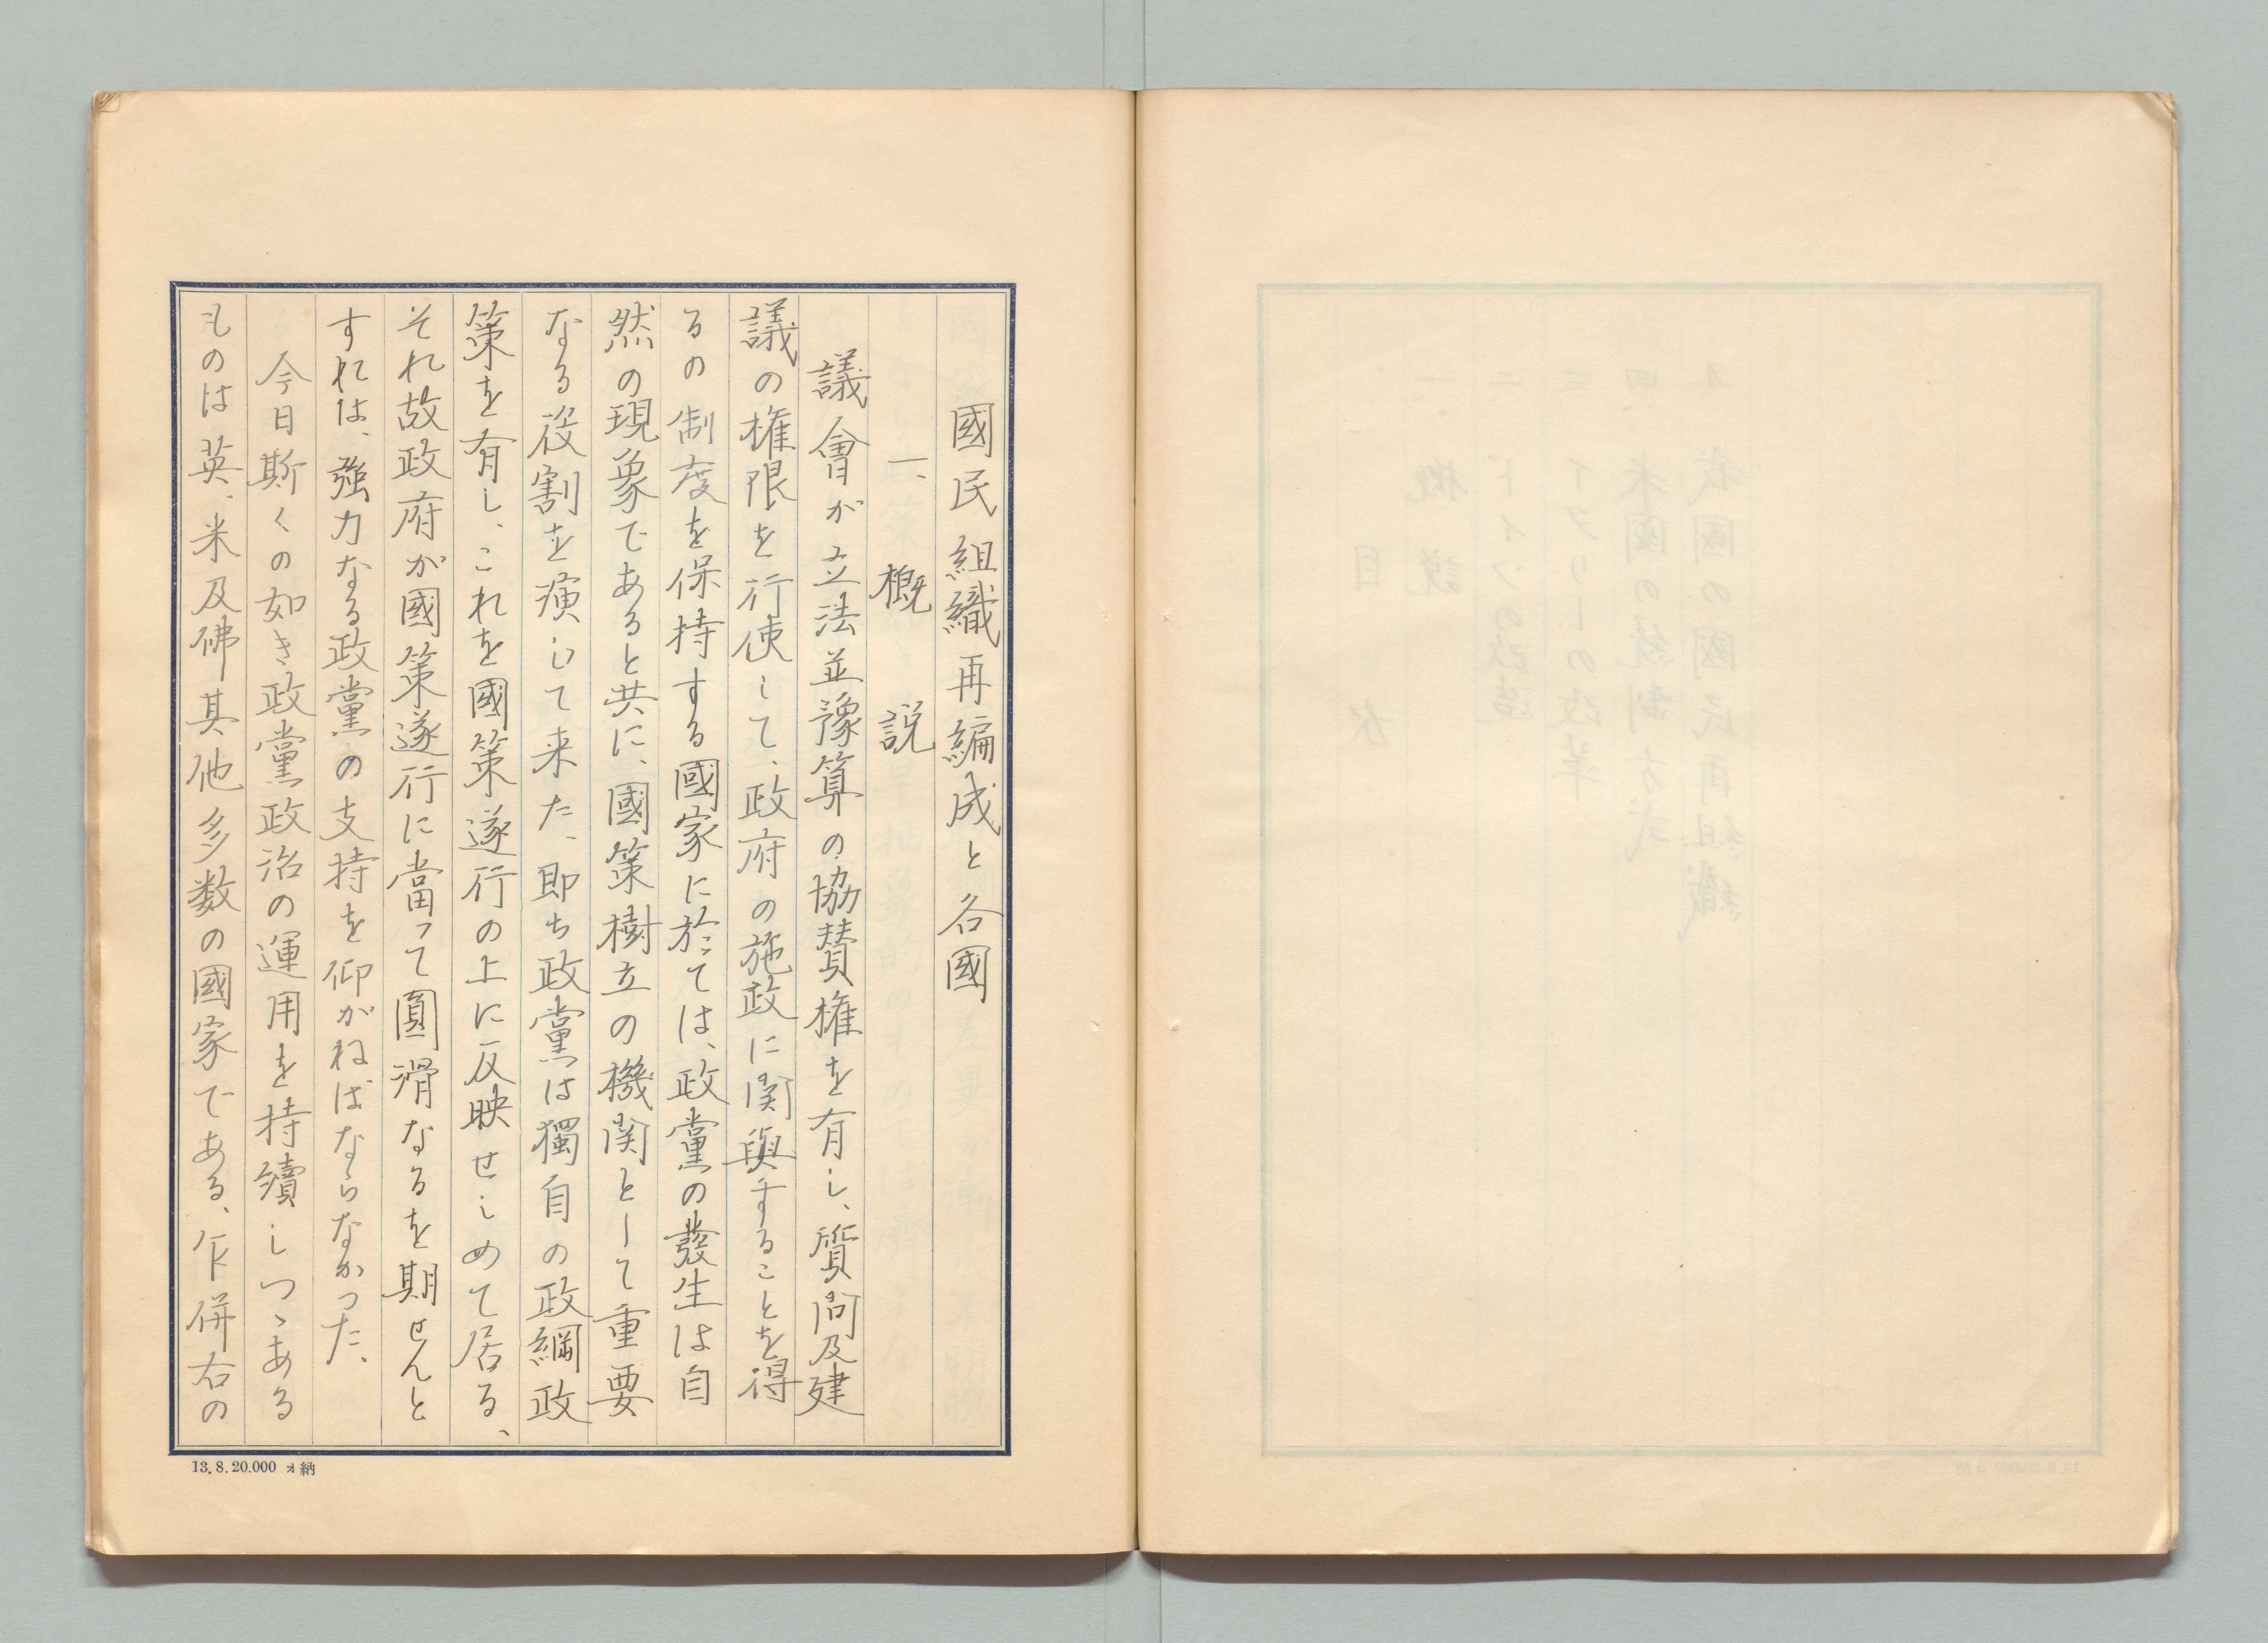 國民組織再編成と各國
一、概說
議會が立法並豫算の協賛権を有し、質問及建
議の権限を行使して、政府の施政に関與することを得
るの制度を保持する國家に於ては、政黨の發生は自
然の現象であると共に、國策樹立の機関として重要
なる役割を演じて来た、即ち政黨は獨自の政綱政
策を有し、これを國策遂行の上に反映せしめて居る、
それ故政府が國策遂行に當って圓滑なるを期せんと
すれは、強力なる政黨の支持を仰がねばならなかつた、
今日斯くの如き政黨政治の運用を持續しつゝある
ものは英、米及佛其他多数の國家である、乍併右の
13.8.20.000 ォ納